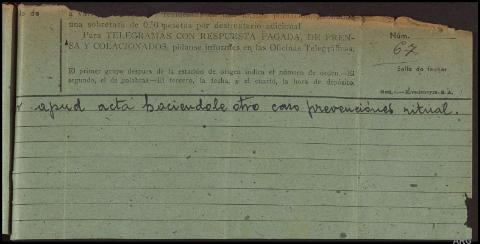 do de
una sobretasa de 0'50 pesetas por destinatario adicional
Para TELEGRAMAS CON RESPUESTA PAGADA, DE PREN-
SA Y COLACIONADOS, pídanse informes en las Oficinas Telegráficas.
Núm.
67
El primer grupo después de la estación de origen indica el número de orden.—El
segundo, el de palabras.—El tercero, la fecha, y el cuarto, la hora de depósito.
Sello de fechar
Rivadeneyra S. A.
apud acta haciendole otro caso prevenciones ritual.